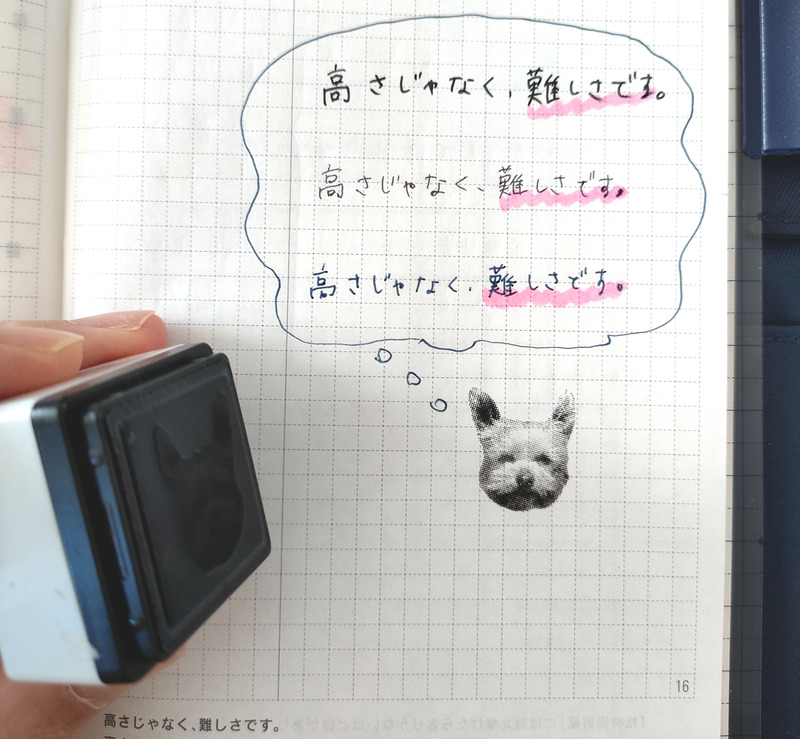 高さじゃなく、難しさです。
高さじゃなく、難しさです。
高さじゃなく、難しさです。
16
高さじゃなく、難しさです。